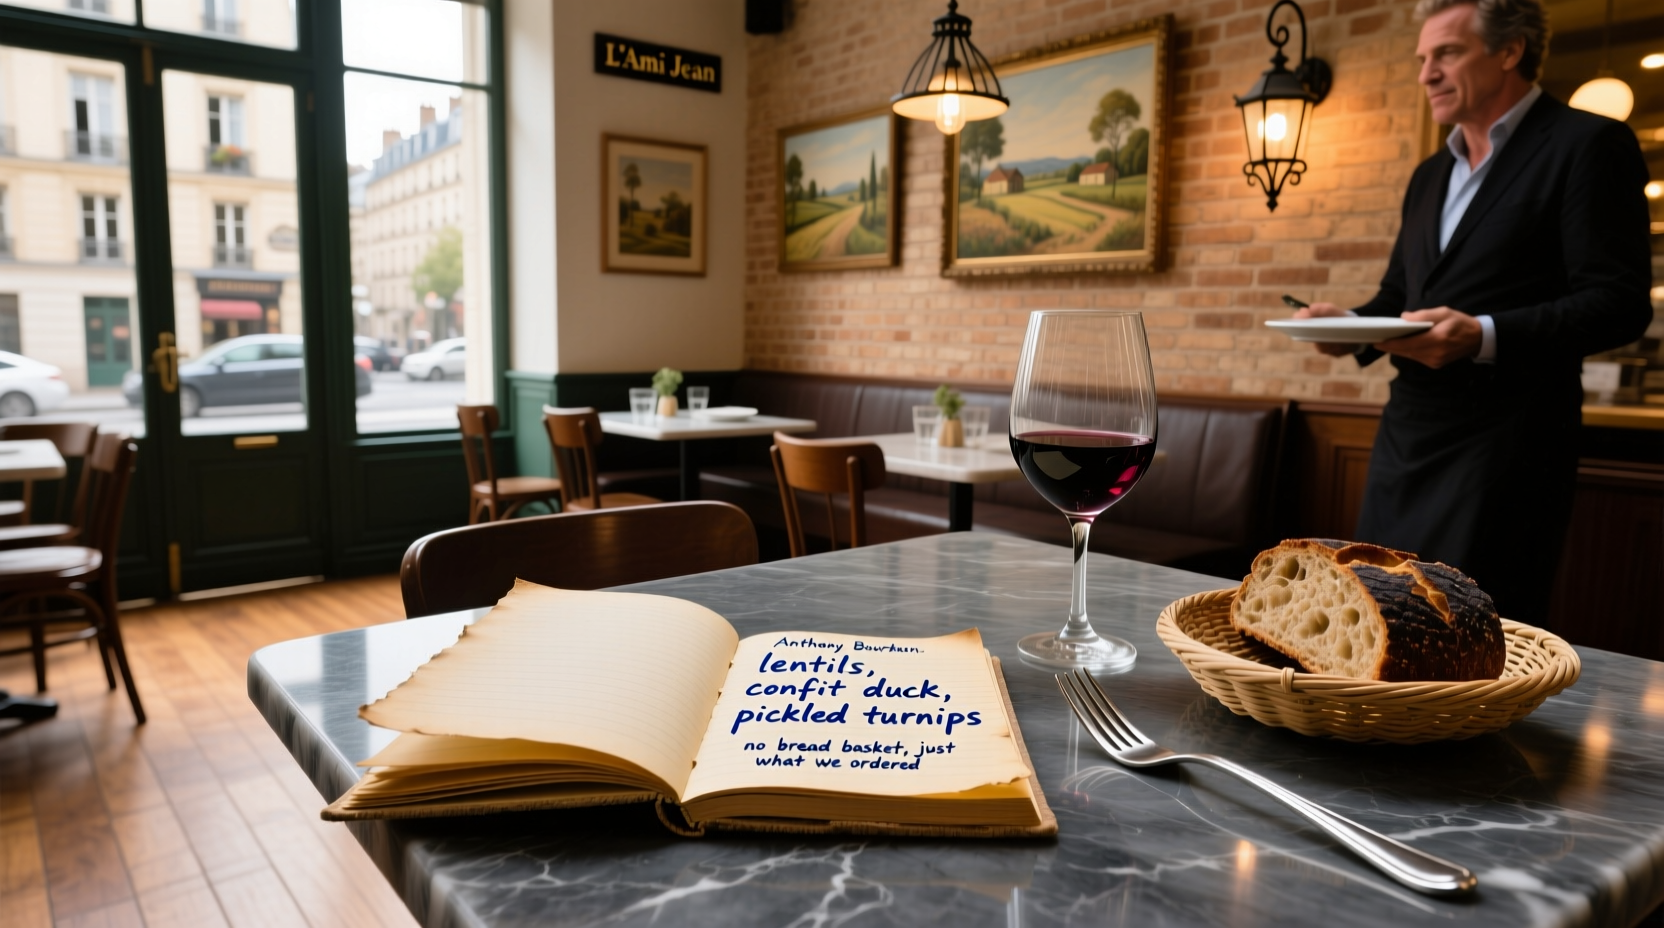 L'Ami Jean
Anthony
lentils,
confit duck,
pickled turnips
no bread basket, just
what we ordered